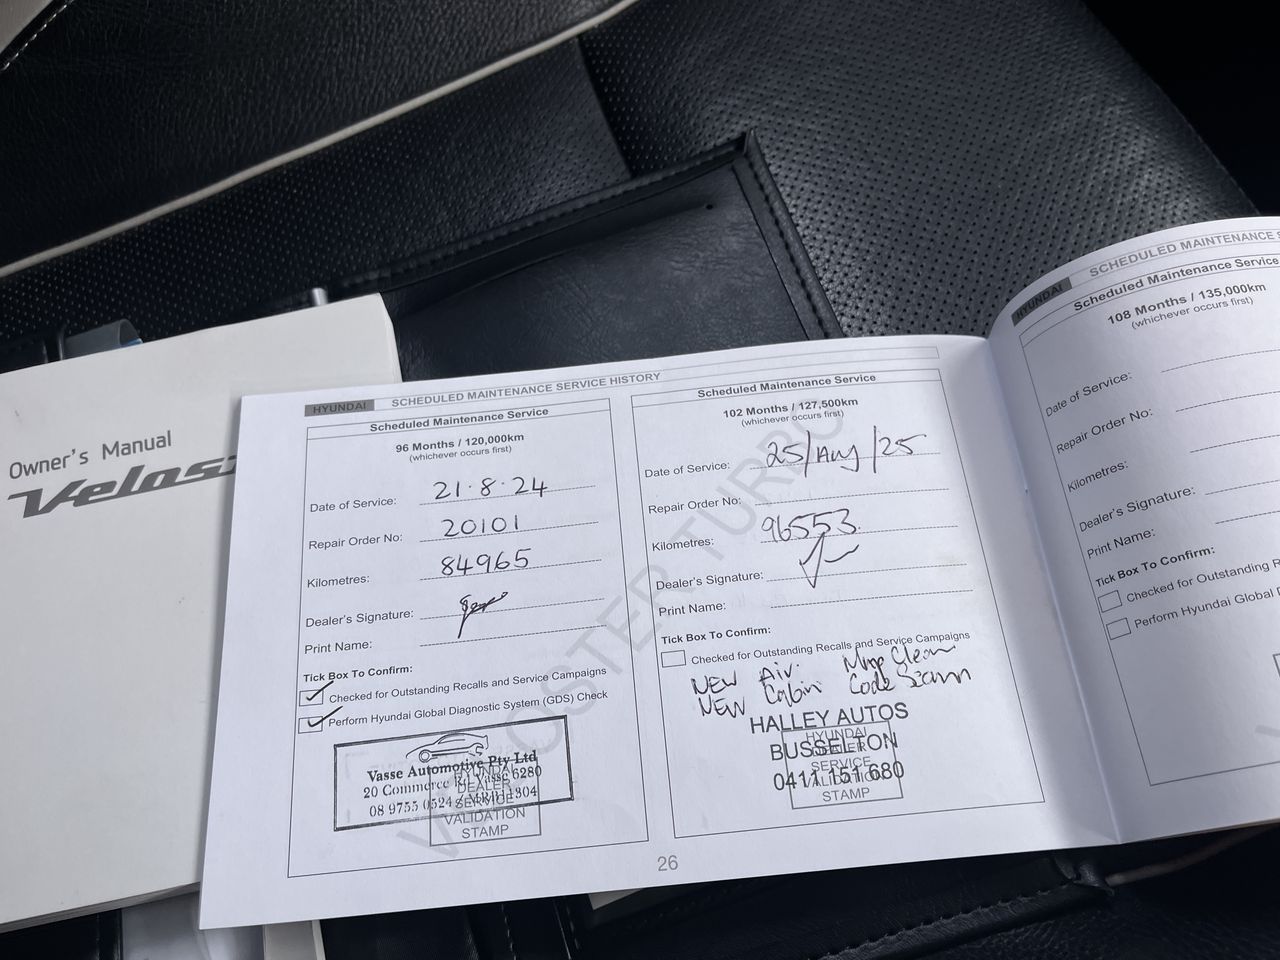 Owner's Manual
HYUNDAI
SCHEDULED MAINTENANCE SERVICE HISTORY
Scheduled Maintenance Service
96 Months / 120,000km
(whichever occurs first)
Date of Service: 21.8.24
Repair Order No: 20101
Kilometres: 84965
Dealer's Signature:
Print Name:
Tick Box To Confirm:
Checked for Outstanding Recalls and Service Campaigns
Perform Hyundai Global Diagnostic System (GDS) Check
Vasse Automotive Pty Ltd
20 Commerce Rd Vasse 6280
08 9755 0524
HYUNDAI
DEALER
SERVICE
VALIDATION
STAMP
Scheduled Maintenance Service
102 Months / 127,500km
(whichever occurs first)
Date of Service: 25/Aug/25
Repair Order No:
Kilometres: 96553
Dealer's Signature:
Print Name:
Tick Box To Confirm:
Checked for Outstanding Recalls and Service Campaigns
NEW Air.
NEW Cabin Code Scann
HALLEY AUTOS
BUSSELTON
0411 151 680
HYUNDAI
DEALER
SERVICE
VALIDATION
STAMP
VELOSTER TURBO
26
HYUNDAI
SCHEDULED MAINTENANCE
Scheduled Maintenance Service
108 Months / 135,000km
(whichever occurs first)
Date of Service:
Repair Order No:
Kilometres:
Dealer's Signature:
Print Name:
Tick Box To Confirm:
Checked for Outstanding
Perform Hyundai Global